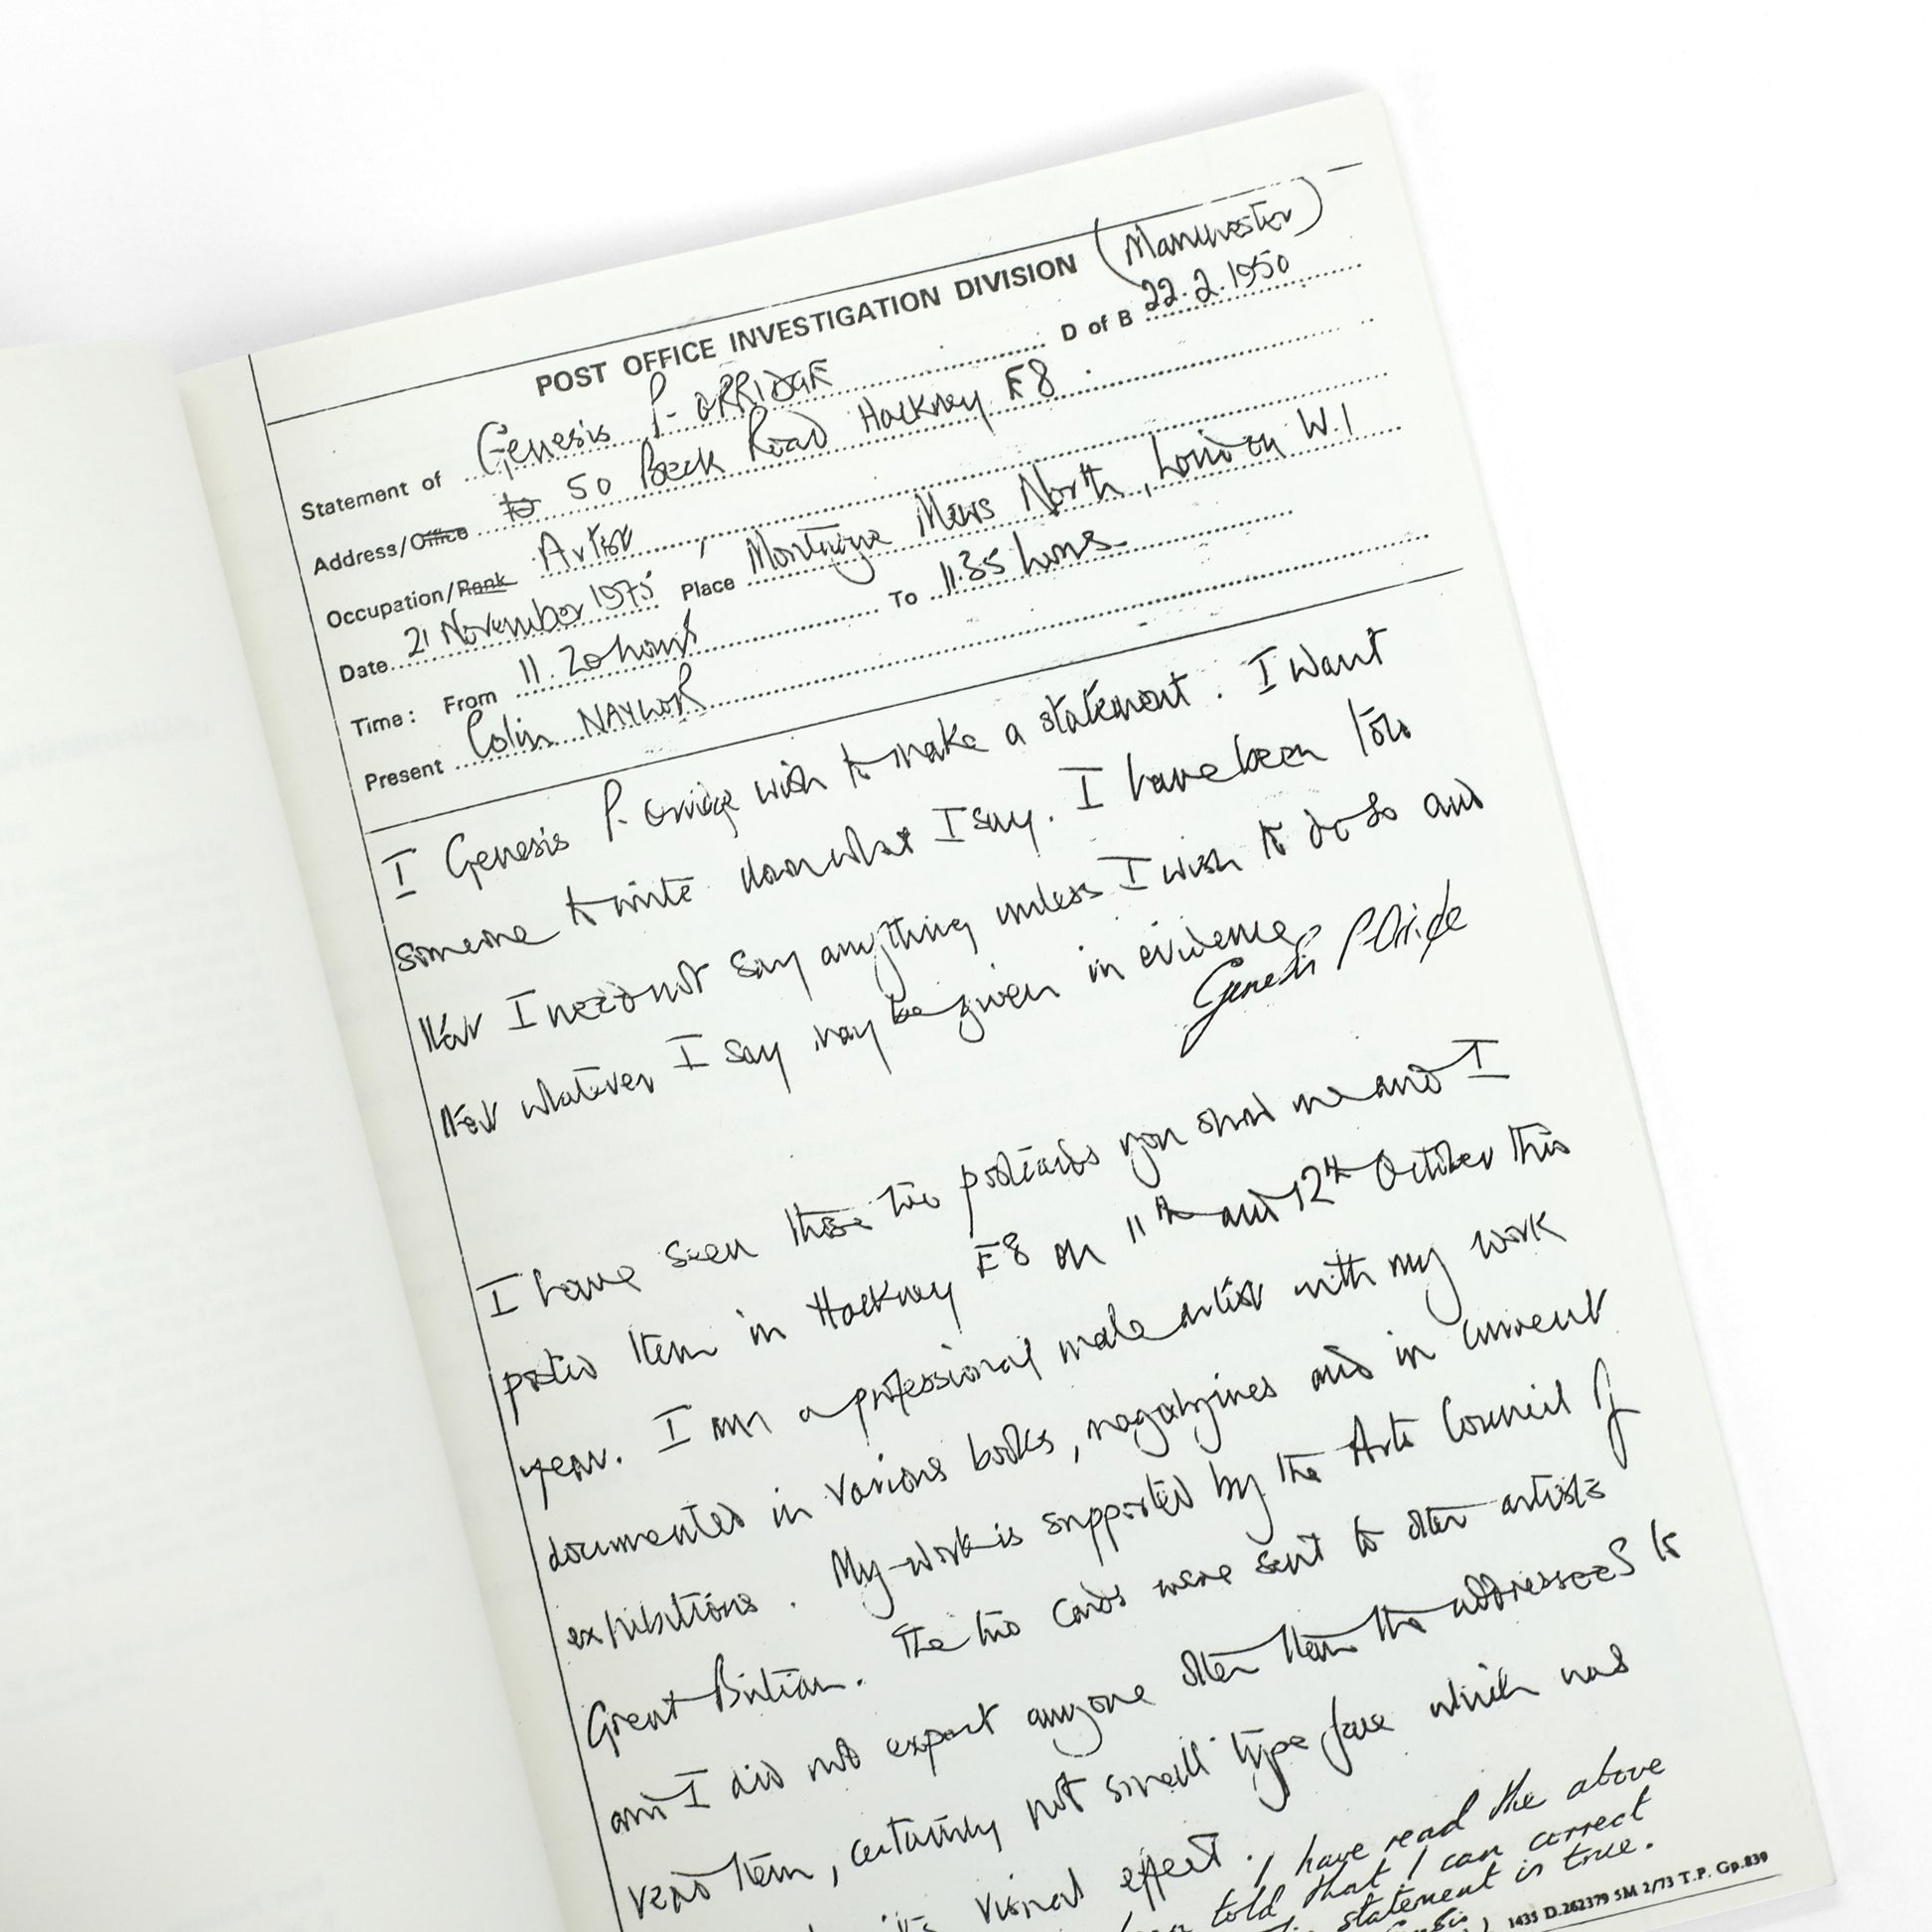 POST OFFICE INVESTIGATION DIVISION (Manchester)
Statement of Genesis P. ORRIDGE D of B 22.2.1950
Address/Office 50 Beck Road Hackney E8.
Occupation/Rank Artist
Date 21 November 1975 Place Mortimer Mews North, London W.1
Time: From 11.20 hours To 11.35 hours
Present Colin NAYLOR
I Genesis P. orridge wish to make a statement. I want
someone to write down what I say. I have been told
that I need not say anything unless I wish to do so and
that whatever I say may be given in evidence
Genesis P-Orridge
I have seen these two postcards you show me and I
posted them in Hackney E8 on 11th and 12th October this
year. I am a professional male artist with my work
documented in various books, magazines and in current
exhibitions. My work is supported by the Arts Council of
Great Britian. The two cards were sent to other artists
and I did not expect anyone other than the addressees to
read them, certainly not small type face which was
visual effect. I have read the above
told that I can correct
statement is true.
1435 D.262379 5M 2/73 T.P. Gp.839